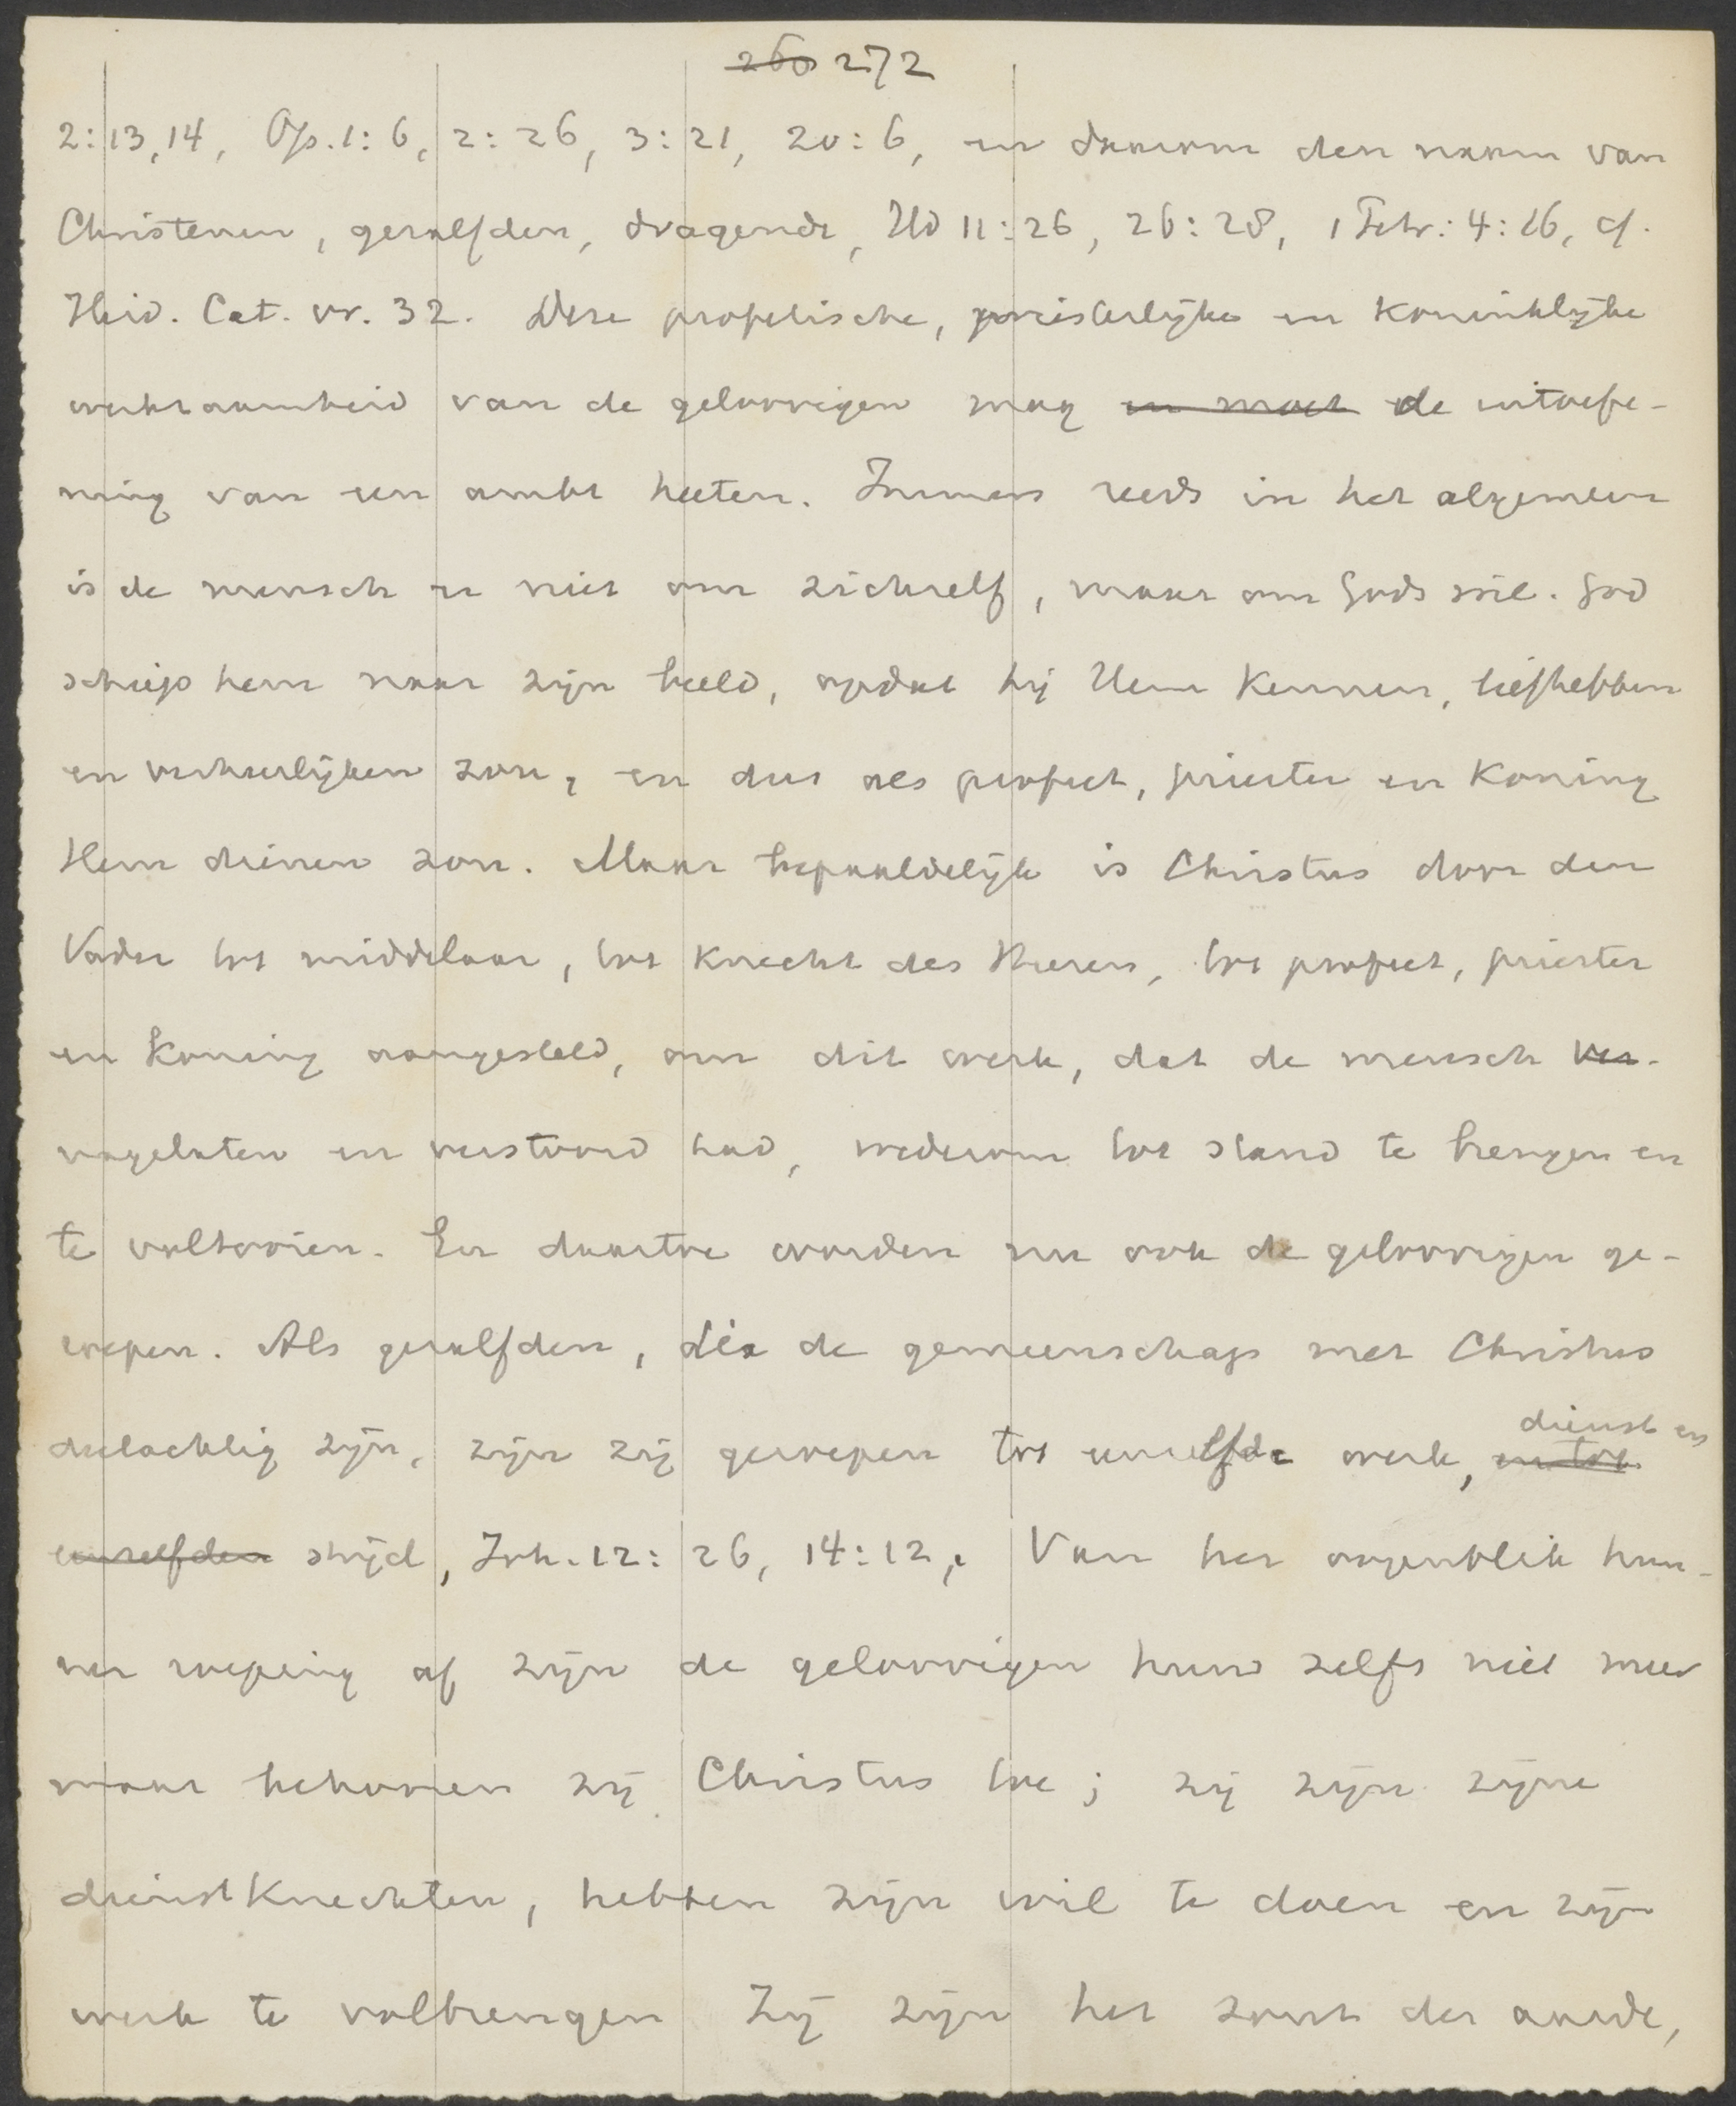 260 272
2:13,14, Op. 1:6, 2:26, 3:21, 20:6, en daarom den naam van
Christenen, gezalfden, dragende, Hd 11:26, 26:28, 1 Petr: 4:16, cf.
Heid. Cat. vr. 32. Deze profetische, priesterlijke en koninklijke
werkzaamheid van de geloovigen mag en moet de uitoefe-
ning van een ambt heeten. Immers reeds in het algemeen
is de mensch er niet om zichzelf, maar om Gods wil. God
schiep hem naar zijn beeld, opdat hij Hem kennen, liefhebben
en verheerlijken zou, en dus als profeet, priester en koning
Hem dienen zou. Maar bepaaldelijk is Christus door den
Vader tot middelaar, tot knecht des Heeren, tot profeet, priester
en koning aangesteld, om dit werk, dat de mensch ver-
nagelaten en verstoord had, wederom tot stand te brengen en
te voltooien. En daartoe worden nu ook de geloovigen ge-
roepen. Als gezalfden, die de gemeenschap met Christus
deelachtig zijn, zijn zij geroepen tot eenzelfde werk, en tot dienst en
eenzelfden strijd, Joh. 12:26, 14:12, Van het oogenblik hun-
ner roeping af zijn de geloovigen huns zelfs niet meer
maar behooren zij Christus toe; zij zijn zijne
dienstknechten, hebben zijn wil te doen en zijn
werk te volbrengen Zij zijn het zout der aarde,